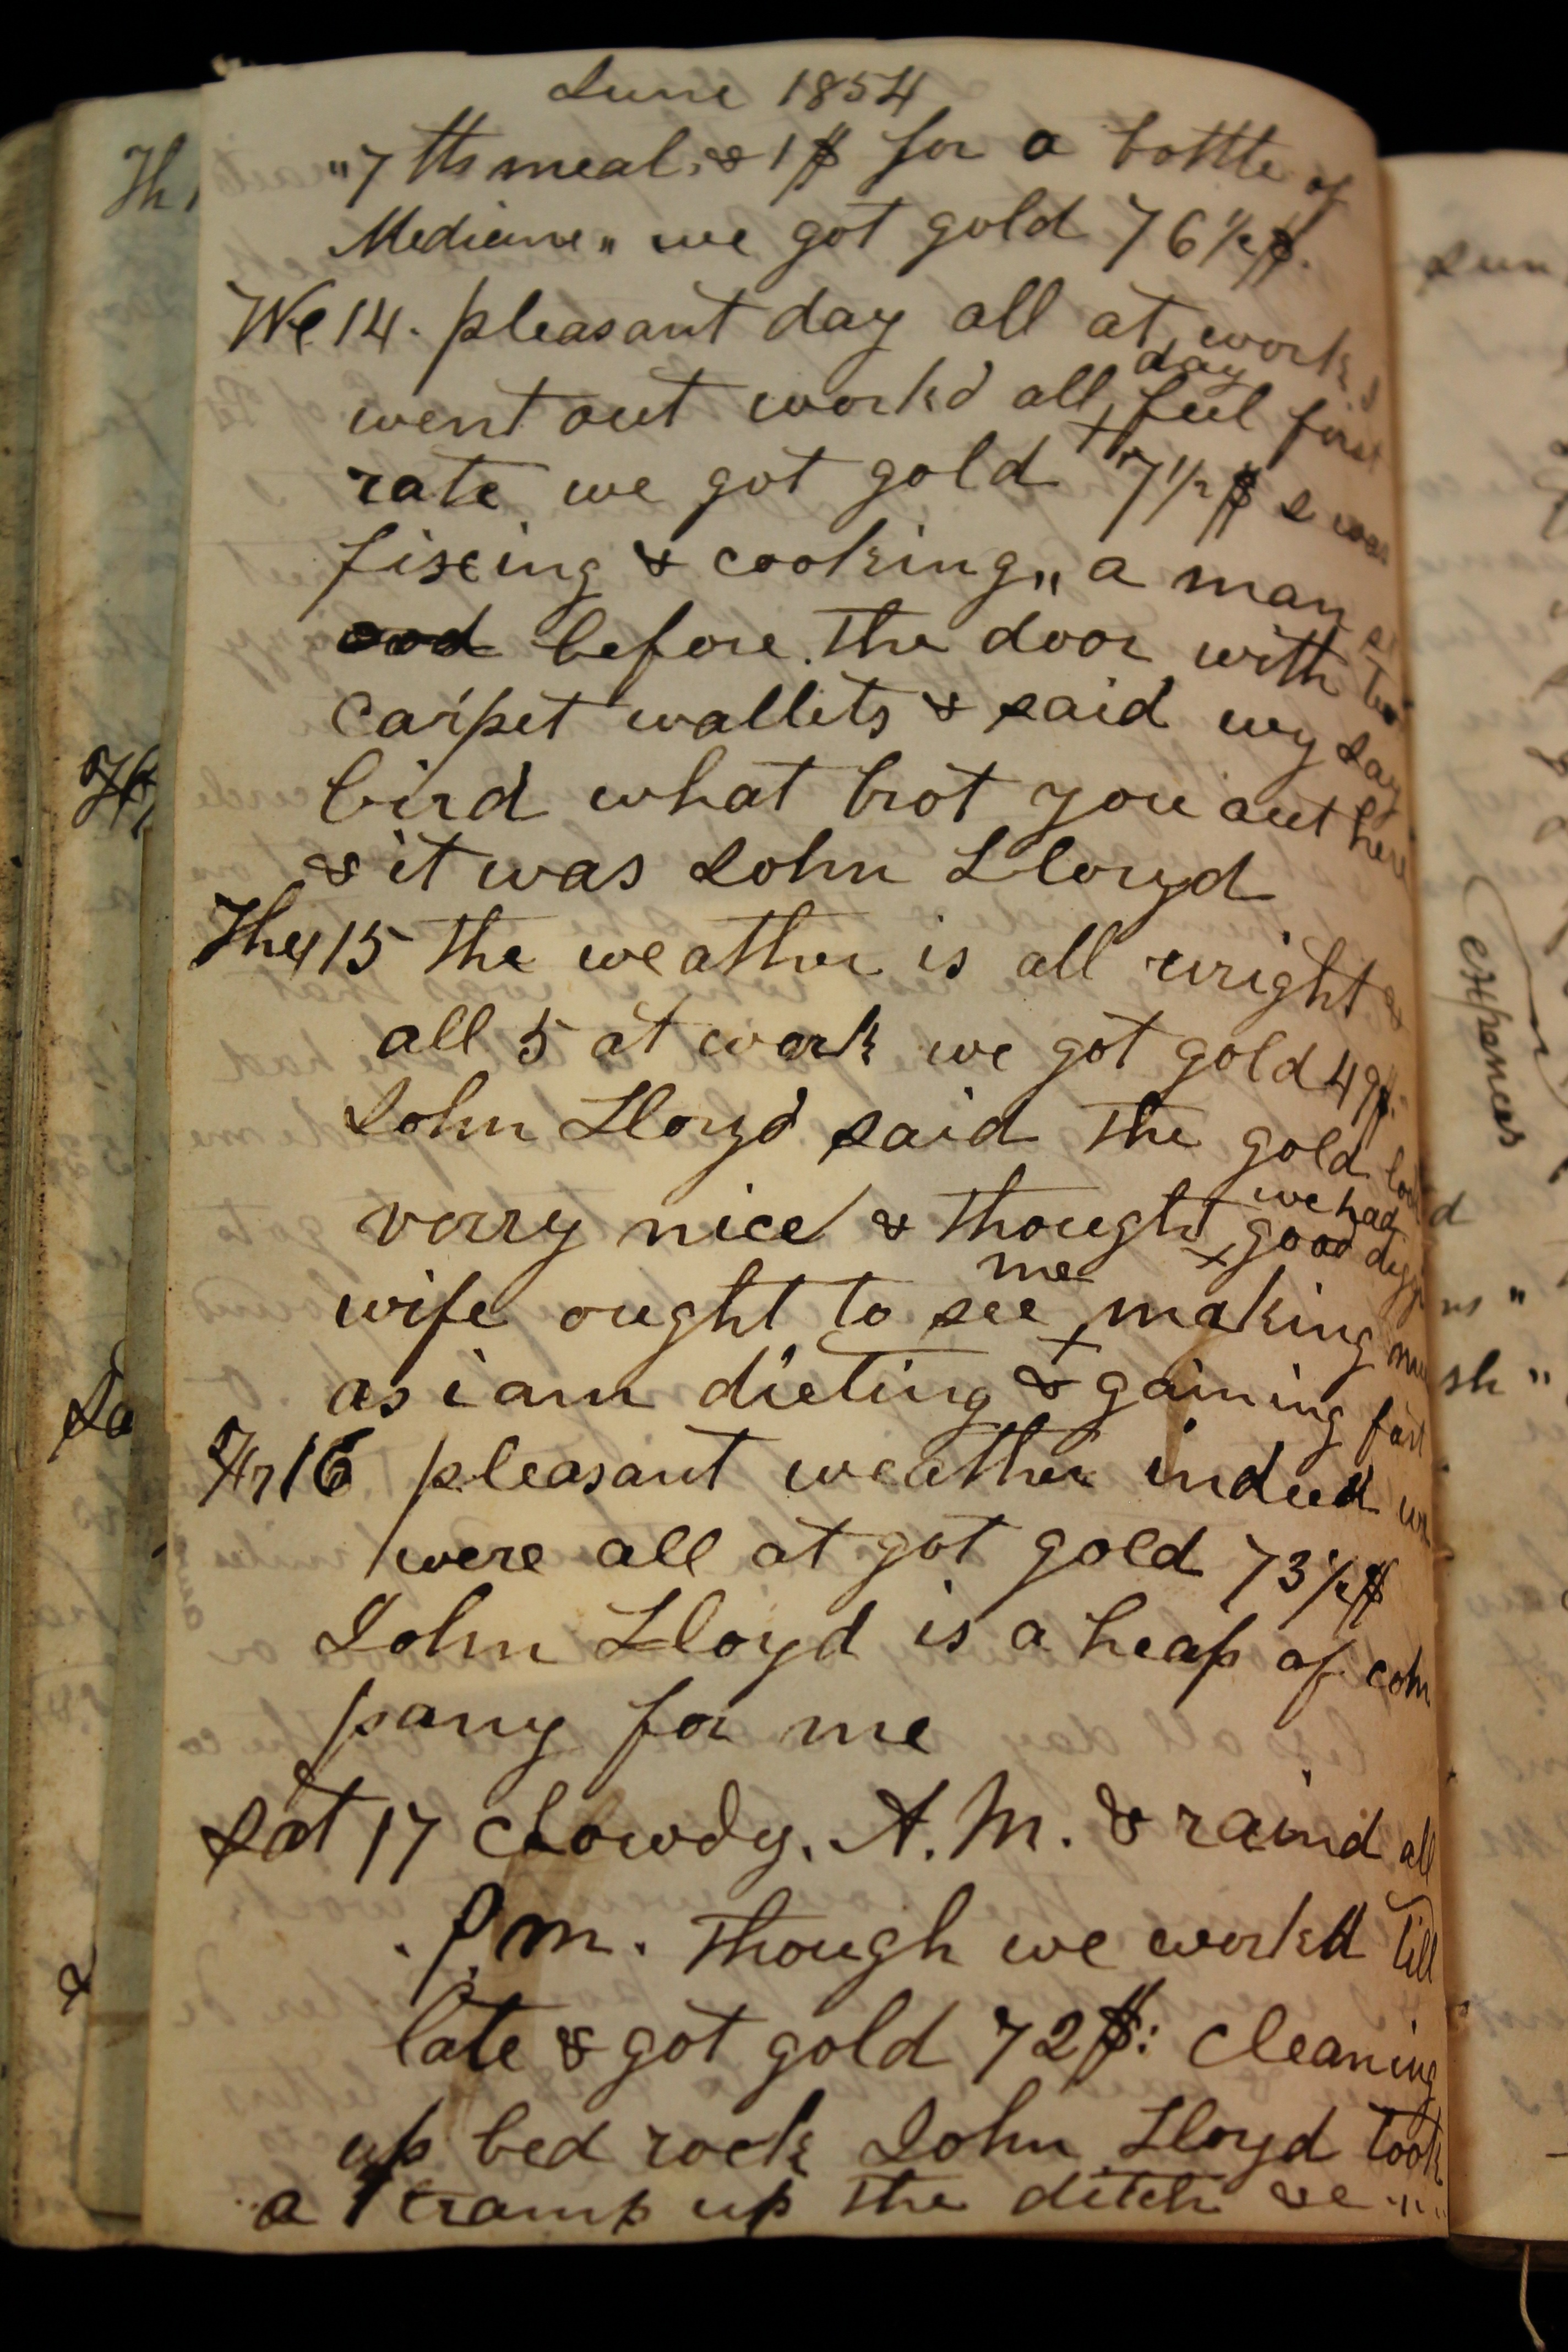 June 1854
"7 tts meal, & 1$ for a bottle of
Mediceine „ we got gold 76 1/2$.
We 14. pleasant day all at work I
went out work'd all day feel first
rate we got gold 77 1/2$ I was
fixeing & cooking „ a man
before the door with two
carpet wallets & said wy say
bird what brot you out here
& it was John Lloyd
Thu 15 the weather is all wright &
all 5 at work we got gold 49$.
John Lloyd said the gold
verry nice & thought we had good
wife ought to see me making
as i am dieting & gaining fast
Fr 16 pleasant weather indeed we
were all at got gold 73 1/2$
John Lloyd is a heap of com
pany for me
Sat 17 clowdy. A.M. & raind all
. P.m. though we workd till
late & got gold 72$: cleaning
up bed rock John Lloyd took
a tramp up the ditch &c "
Th
Sa
&
Sun
expences
d
ns "
sh "